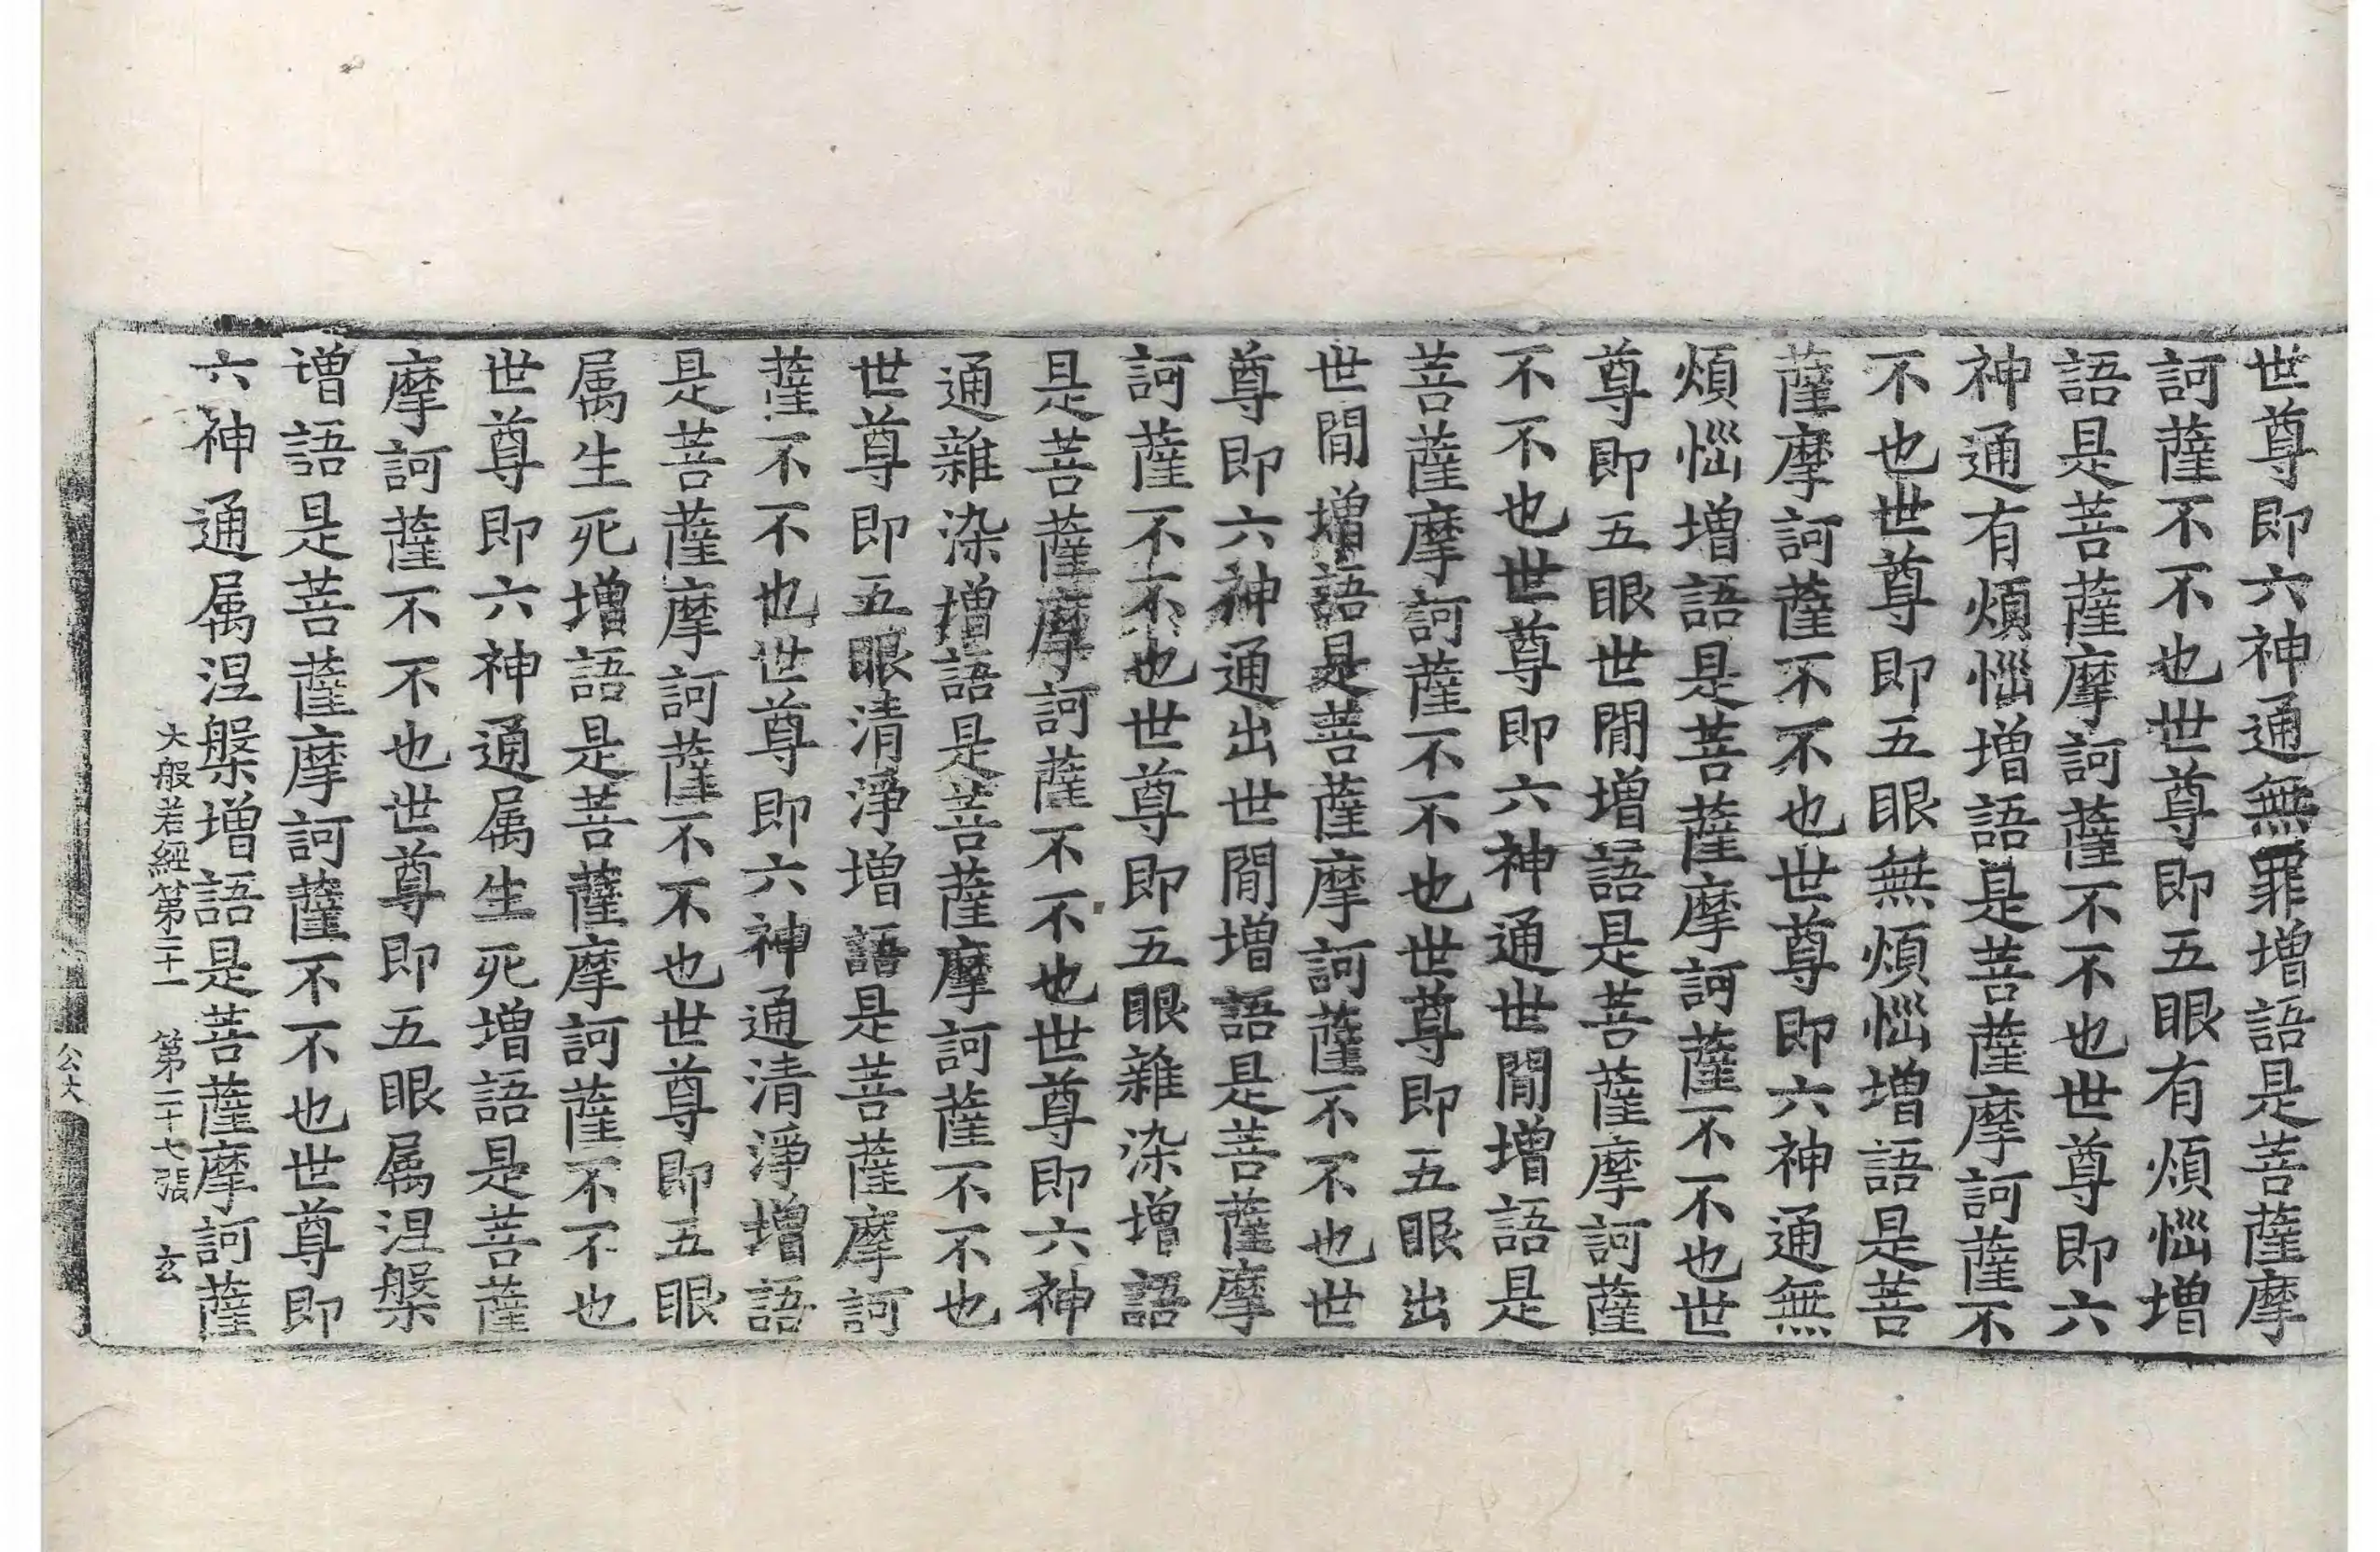 世尊即六神通無罪增語是菩薩摩
訶薩不不也世尊即五眼有煩惱增
語是菩薩摩訶薩不不也世尊即六
神通有煩惱增語是菩薩摩訶薩不
不也世尊即五眼無煩惱增語是菩
薩摩訶薩不不也世尊即六神通無
煩惱增語是菩薩摩訶薩不不也世
尊即五眼世間增語是菩薩摩訶薩
不不也世尊即六神通世間增語是
菩薩摩訶薩不不也世尊即五眼出
世間增語是菩薩摩訶薩不不也世
尊即六神通出世間增語是菩薩摩
訶薩不不也世尊即五眼雜染增語
是菩薩摩訶薩不不也世尊即六神
通雜染增語是菩薩摩訶薩不不也
世尊即五眼清淨增語是菩薩摩訶
薩不不也世尊即六神通清淨增語
是菩薩摩訶薩不不也世尊即五眼
属生死增語是菩薩摩訶薩不不也
世尊即六神通属生死增語是菩薩
摩訶薩不不也世尊即五眼属涅槃
增語是菩薩摩訶薩不不也世尊即
六神通属涅槃增語是菩薩摩訶薩
大般若經第二十一 第二十七張 玄
公大